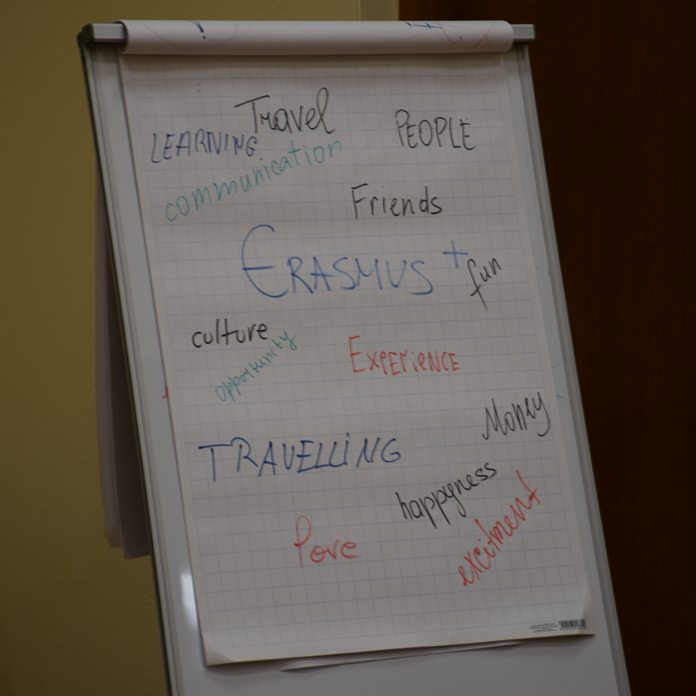 Travel
PEOPLE
LEARNING
communication
Friends
ERASMUS +
fun
culture
opportunity
EXPERiENCE
Money
TRAVELLiNG
happyness
love
excitment